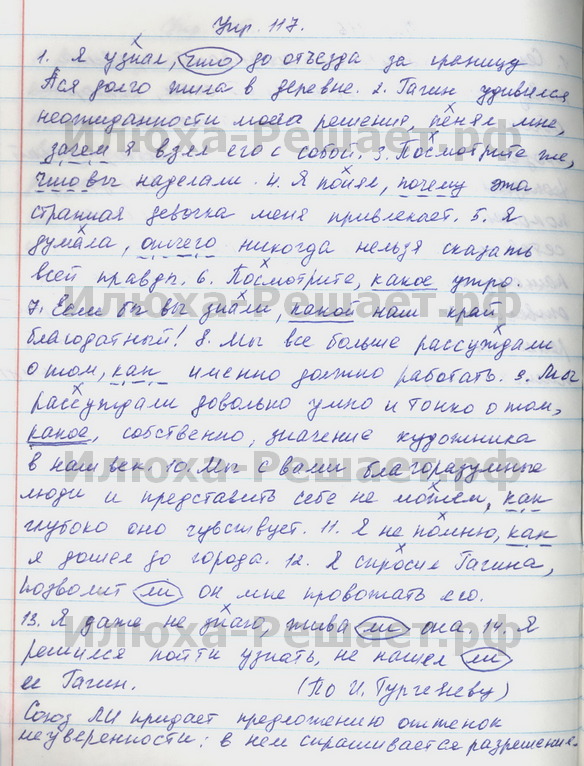 Упр. 117.
1. Я узнал, что до отъезда за границу
Ася долго жила в деревне. 2. Гагин удивился
неожиданности моего решения, пенял мне,
зачем я взял его с собой. 3. Посмотрите же,
что вы наделали. 4. Я понял, почему эта
странная девочка меня привлекает. 5. Я
думала, отчего никогда нельзя сказать
всей правды. 6. Посмотрите, какое утро.
7. Если бы вы знали, какой наш край
благодатный! 8. Мы все больше рассуждали
о том, как именно должно работать. 9. Мы
рассуждали довольно умно и тонко о том,
какое, собственно, значение художника
в наш век. 10. Мы с вами благоразумные
люди и представить себе не можем, как
глубоко она чувствует. 11. Я не помню, как
я дошел до города. 12. Я спросил Гагина,
позволит ли он мне провожать его.
13. Я даже не знаю, жива ли она. 14. Я
решился пойти узнать, не нашел ли
ее Гагин. (По И. Тургеневу)
Союз ЛИ придает предложению оттенок
неуверенности: в нем спрашивается разрешение.
Илюха-Решает.рф
Илюха-Решает.рф
Илюха-Решает.рф
Илюха-Решает.рф